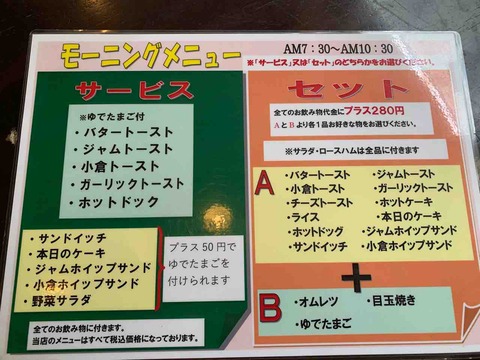 モーニングメニュー
AM7:30～AM10:30
※「サービス」又は「セット」のどちらかをお選びください。
サービス
※ゆでたまご付
・バタートースト
・ジャムトースト
・小倉トースト
・ガーリックトースト
・ホットドック
・サンドイッチ
・本日のケーキ
・ジャムホイップサンド
・小倉ホイップサンド
・野菜サラダ
プラス50円で
ゆでたまごを
付けられます
全てのお飲み物に付きます。
当店のメニューはすべて税込価格になっております。
セット
全てのお飲み物代金にプラス280円
AとBより各1品お好きな物をお選びください。
※サラダ・ロースハムは全品に付きます
A
・バタートースト ・ジャムトースト
・小倉トースト ・ガーリックトースト
・チーズトースト ・ホットケーキ
・ライス ・本日のケーキ
・ホットドッグ ・ジャムホイップサンド
・サンドイッチ ・小倉ホイップサンド
+
B
・オムレツ ・目玉焼き
・ゆでたまご